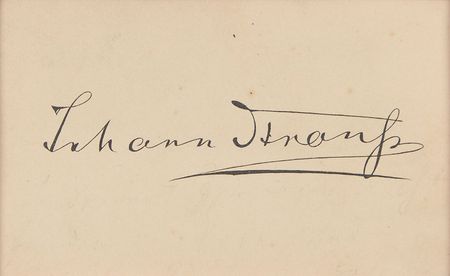 Johann Strauß